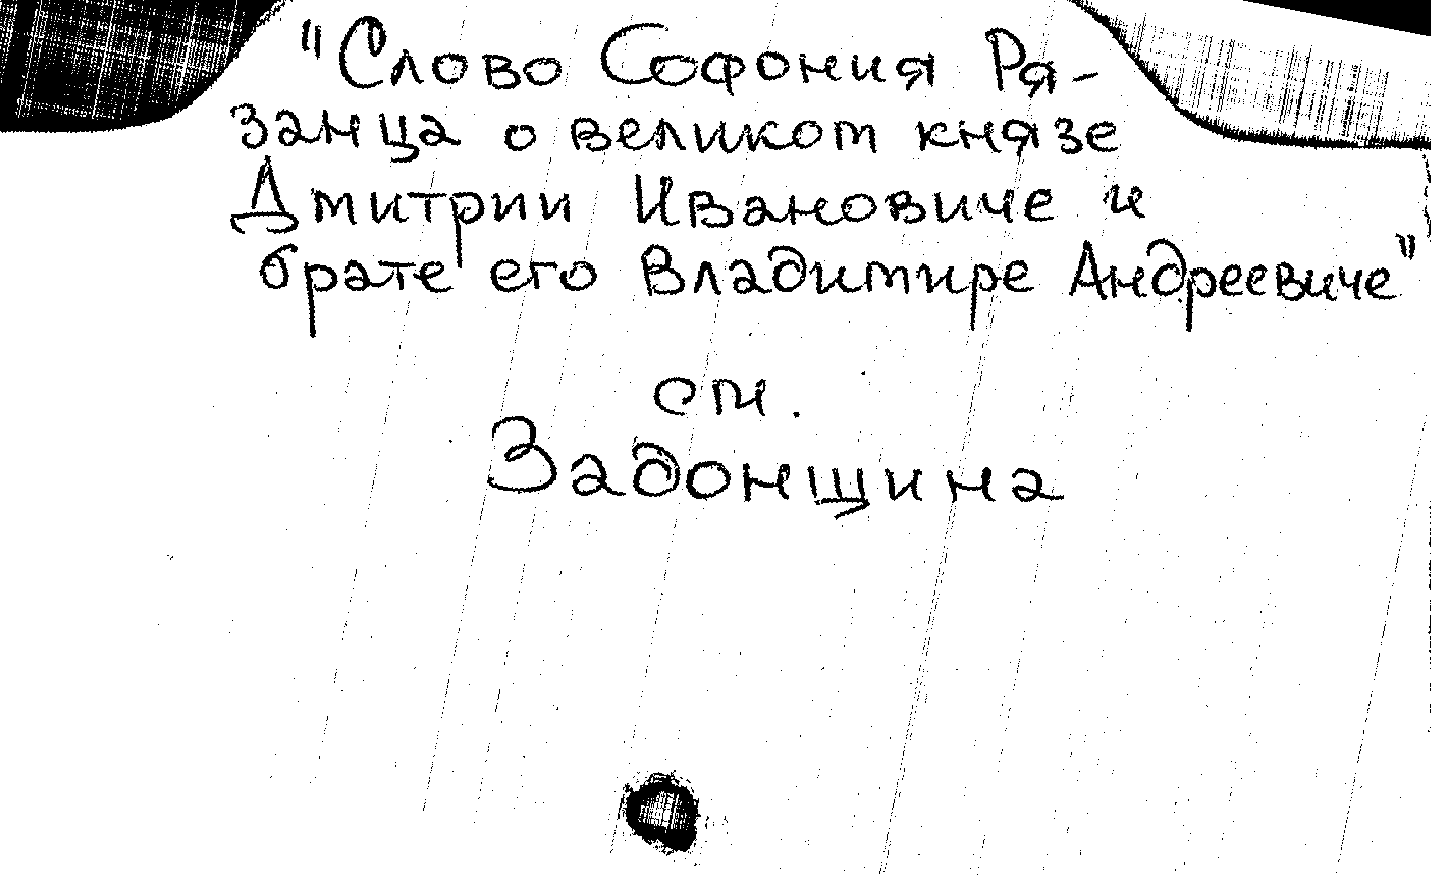 "Слово Софония Ря-
занца о великом князе
Дмитрии Ивановиче и
брате его Владимире Андреевиче"
см.
Задонщина